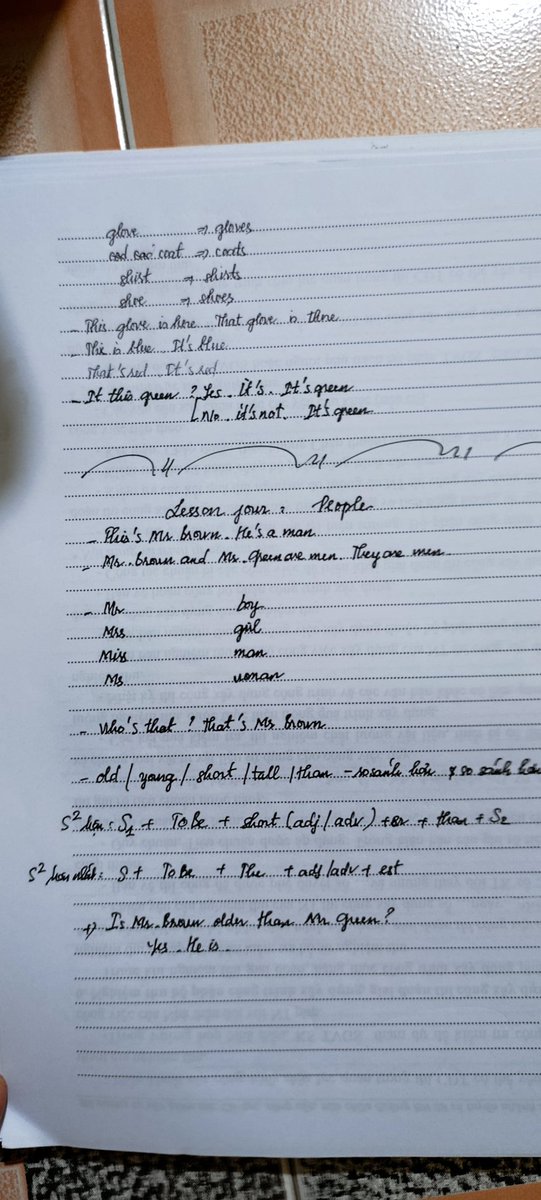 glove => gloves
coat => coats
shirt => shirts
shoe => shoes
- This glove is here. That glove is there
- This is blue. It's blue.
That's red. It's red
- It this green? Yes. it's. It's green
No. it's not. It's green
Lesson four: People
- This's Mr. brown. He's a man
- Mr. Brown and Mr. Green are men. They are men
- Mr boy
Mrs girl
Miss man
Ms woman
- Who's that? that's Mr Brown
- old / young / short / tall / than - so sánh hơn & so sánh hơn
S² hơn: S1 + To Be + short (adj / adv) + er + than + S2
S² hơn nhất: S + To Be + The + adj / adv + est
=> Is Mr. Brown older than Mr Green?
Yes. He is.